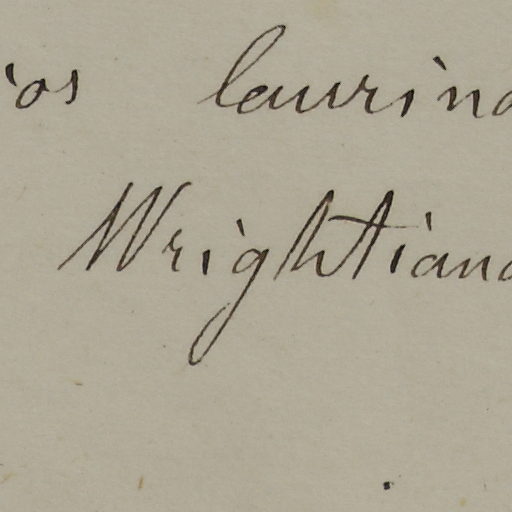 ios laurina
Wrightiana